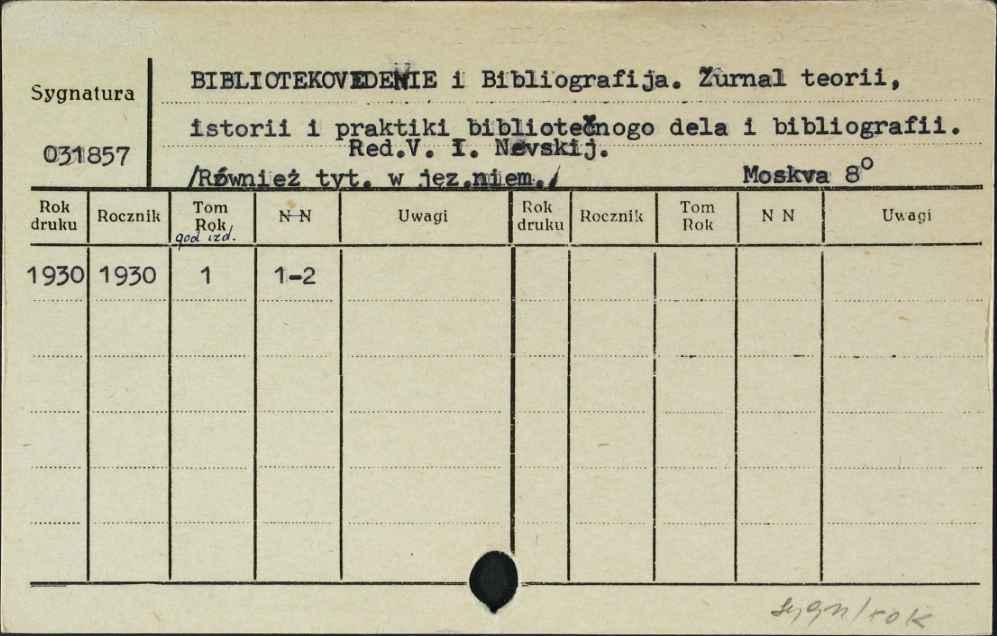 Sygnatura
031857
BIBLIOTEKOVEDENIE i Bibliografija. Žurnal teorii,
istorii i praktiki bibliotečnogo dela i bibliografii.
Red.V. I. Nevskij.
/Również tyt. w jęz.niem./ Moskva 8°
Rok druku Rocznik Tom Rok N N Uwagi Rok druku Rocznik Tom Rok N N Uwagi
god izd.
1930 1930 1 1-2
sygn/rok